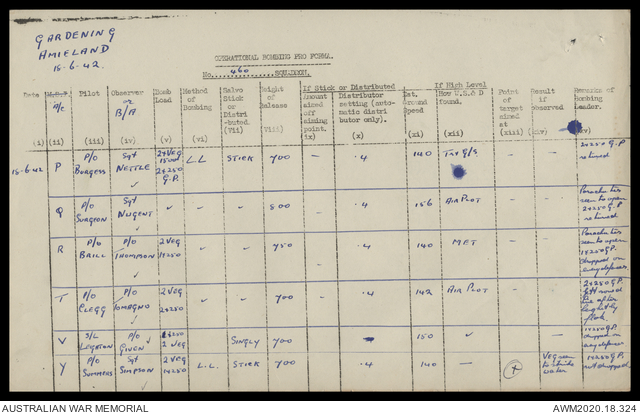 GARDENING
AMIELAND
15-6-42.
OPERATIONAL BOMBING PRO FORMA.
No. 460 SQUADRON.
Date A/c Pilot Observer or B/A Bomb Load Method of Bombing Salvo Stick or Distributed. Height of Release If Stick or Distributed Amount aimed off aiming point. Distributor setting (automatic distributor only). Ground Speed If High Level How U.S. & D found. Point of target aimed at Result if observed Remarks of Bombing Leader.
(i) (ii) (iii) (iv) (v) (vi) (vii) (viii) (ix) (x) (xi) (xii) (xiii) (xiv) (xv)
15-6-42 P P/O Burgess Sgt NETTLE 2 VEG 1500 2x250 G.P. L.L. STICK 700 — .4 140 2x250 G.P returned
Q P/O SURGEON Sgt NUGENT 800 .4 156 AIR PLOT — Parachutes seen to open 2x250 G.P returned
R P/O BRILL P/O THOMPSON 2 VEG 1x250 750 — .4 140 MET — Parachutes seen to open 1x250 G.P. dropped on
T P/O CLEGG P/O 2 VEG 2x250 700 — .4 142 AIR PLOT — 2x250 G.P. after flak.
V S/L LEIGHTON P/O GIVEN 2 VEG SINGLY 700 150 — 1x250 G.P. dropped on
Y P/O SUMMERS Sgt SIMPSON 2 VEG 1x250 L.L. STICK 700 .4 140 — Veg seen to strike water 1x250 G.P. not dropped.
AUSTRALIAN WAR MEMORIAL AWM2020.18.324